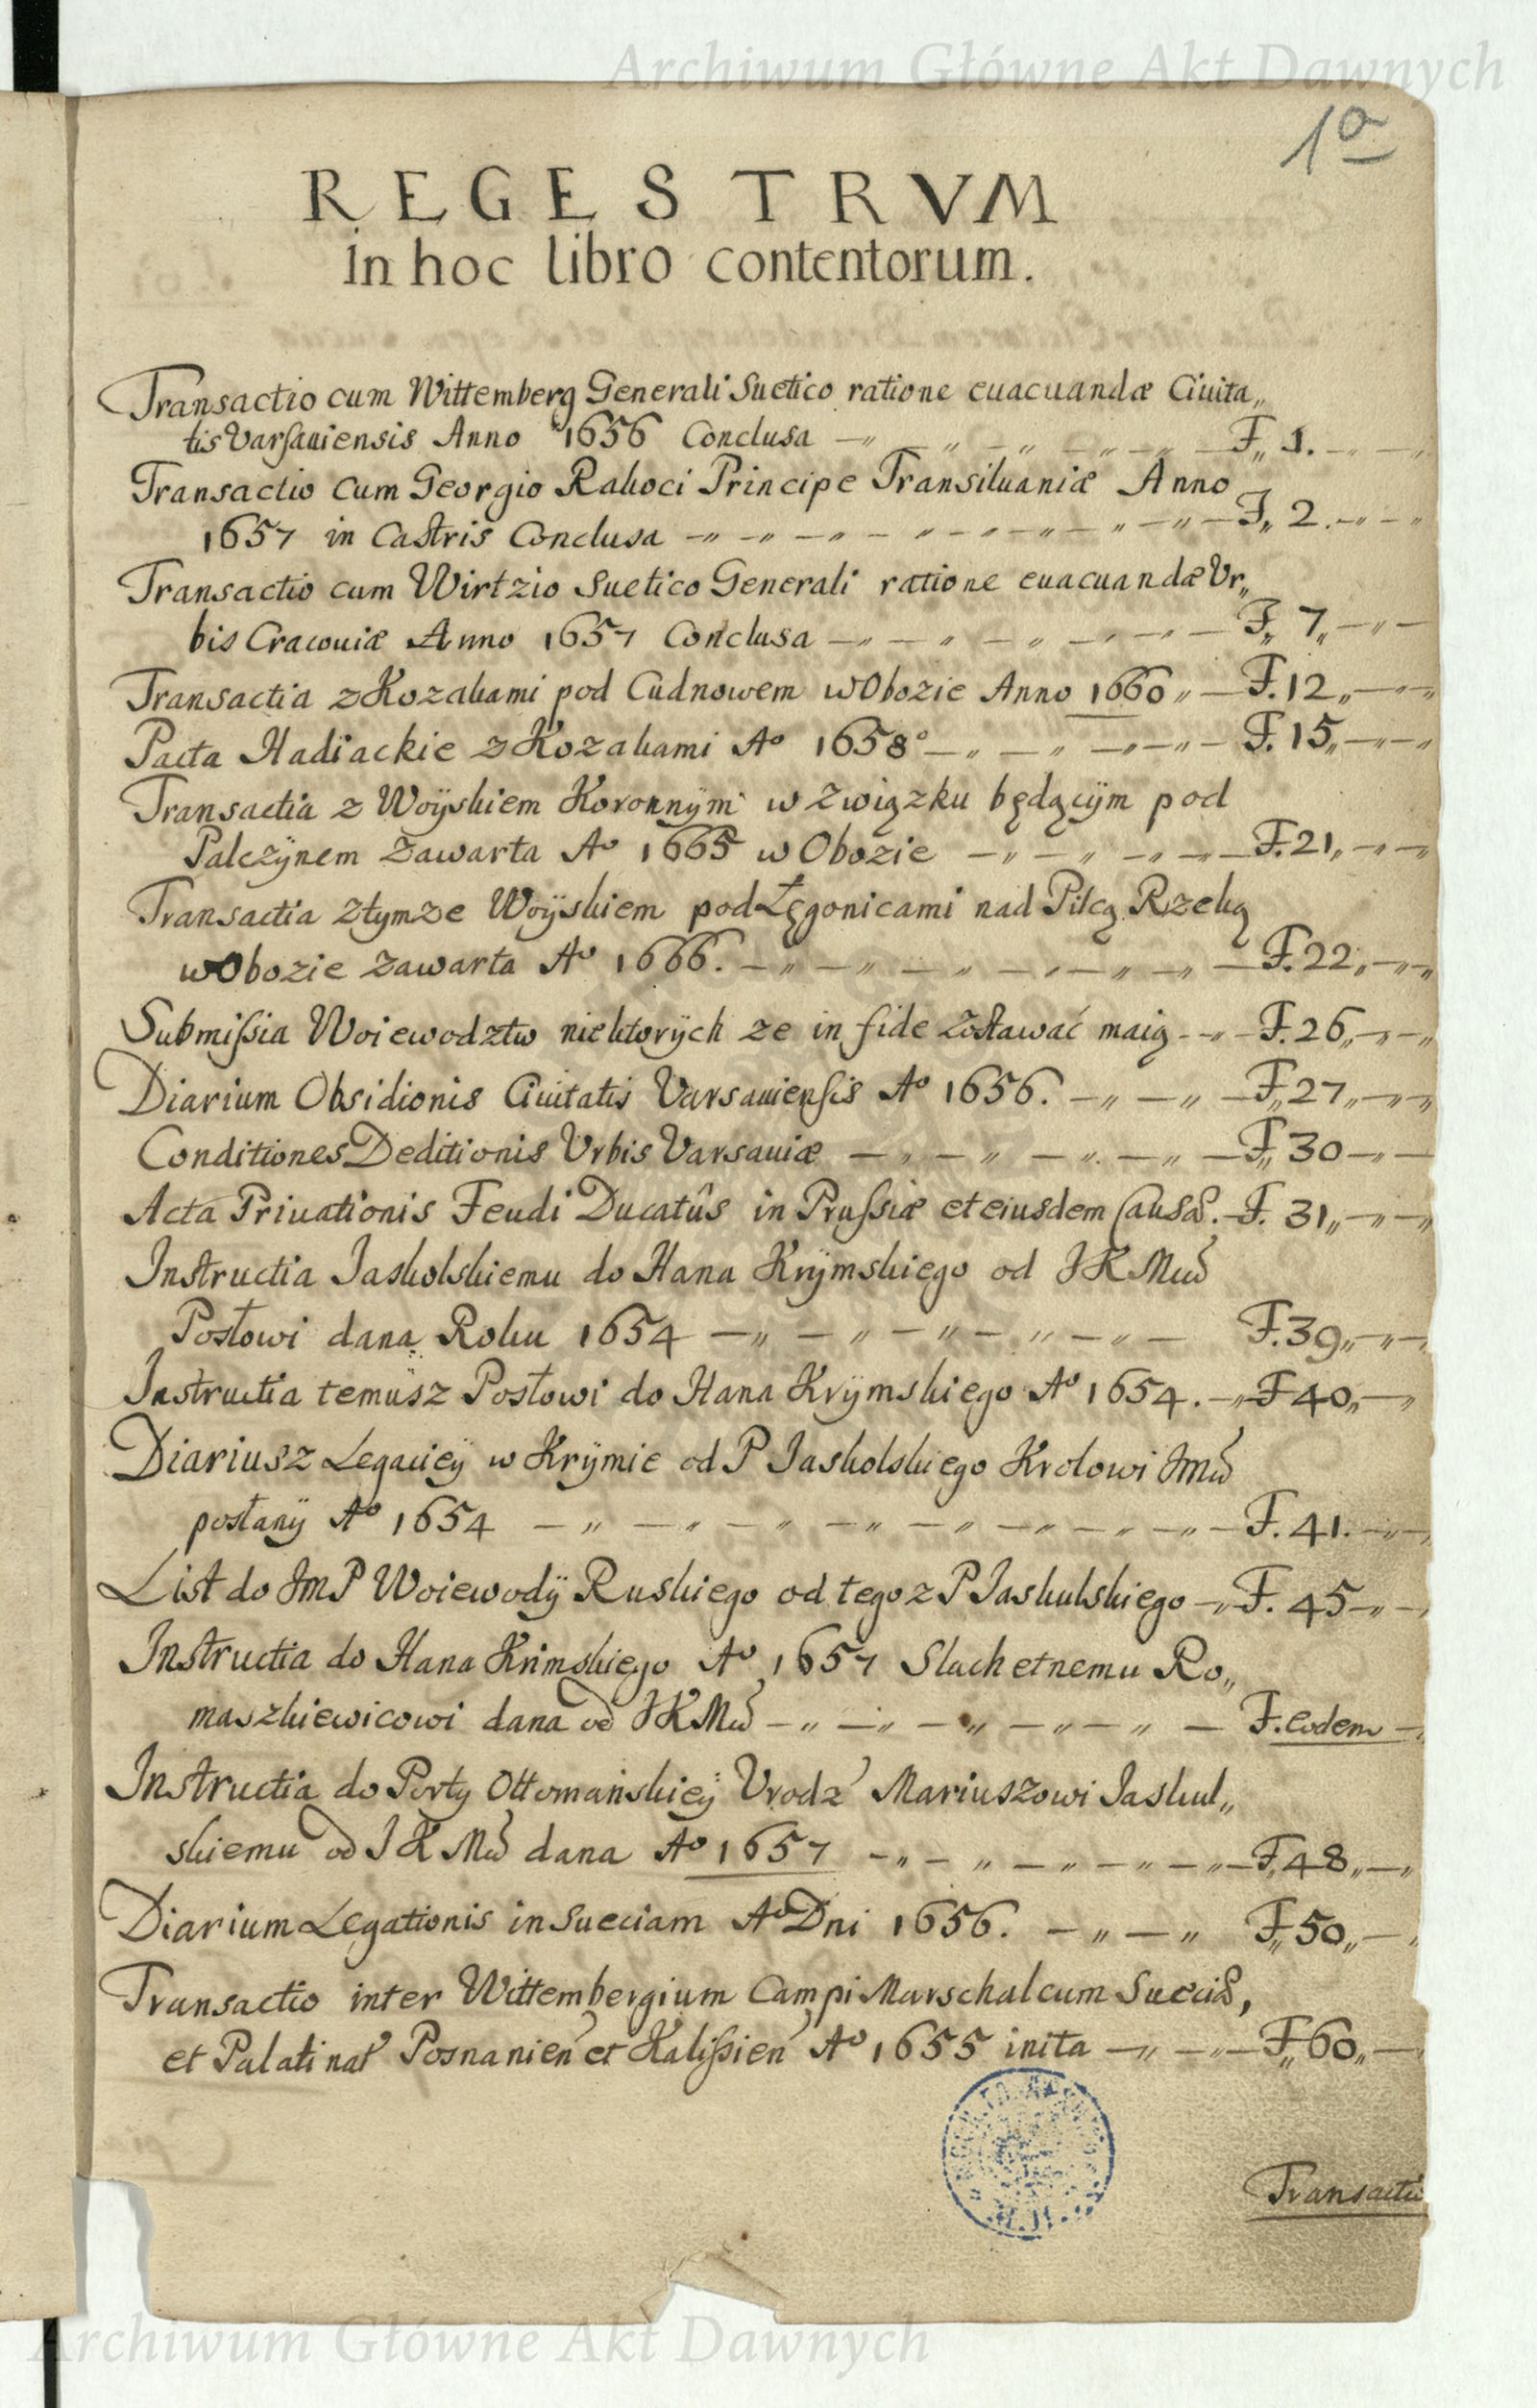 Archiwum Główne Akt Dawnych
1a
REGESTRVM
in hoc libro contentorum.
Transactio cum Wittemberg Generali Suetico ratione euacuandæ Ciuita„
tis Varsauiensis Anno 1656 Conclusa — F„ 1.
Transactio cum Georgio Rakoci Principe Transiluaniæ Anno
1657 in Castris Conclusa — F„ 2.
Transactio cum Wirtzio Suetico Generali ratione euacuandæ Vr„
bis Cracouiæ Anno 1657 Conclusa — F„ 7„
Transactia z Kozakami pod Cudnowem w Obozie Anno 1660„ — F. 12„
Pacta Hadiackie z Kozakami Aº 1658º — F. 15„
Transactia z Woÿskiem Koronnÿm w Związku będącÿm pod
Palczÿnem Zawarta Aº 1665 w Obozie — F. 21„
Transactia z tymze Woÿskiem pod Łęgonicami nad Pilcą Rzeką
w Obozie Zawarta Aº 1666. — F. 22„
Submissia Woiewodztw niektorÿch ze in fide zostawać maią — F. 26„
Diarium Obsidionis Ciuitatis Varsauiensis Aº 1656. — F„ 27„
Conditiones Deditionis Vrbis Varsauiæ — F„ 30
Acta Priuationis Feudi Ducatûs in Prussiæ et eiusdem Causæ. — F. 31„
Instructia Jaskolskiemu do Hana Krÿmskiego od JKMći
Posłowi dana Roku 1654 — F. 39„
Instructia temusz Posłowi do Hana Krÿmskiego Aº 1654. — F 40„
Diariusz Legacieÿ w Krÿmie od P Jaskolskiego Krolowi Jmći
posłanÿ Aº 1654 — F. 41.
List do JmP Woiewodÿ Ruskiego od tegoz P Jaskulskiego — F. 45
Instructia do Hana Krimskiego Aº 1657 Slachetnemu Ro„
maszkiewicowi dana od JKMći — F. eodem
Instructia do Porty Ottomańskieÿ Vrodz Mariuszowi Jaskul„
skiemu od JKMći dana Aº 1657 — F„ 48„
Diarium Legationis in Sueciam Aº Dni 1656. — F„ 50„
Transactio inter Wittembergium Campi Marschalcum Sueciæ,
et Palatinat Posnanien et Kalissien Aº 1655 inita — F„ 60„
Transactio
Archiwum Główne Akt Dawnych